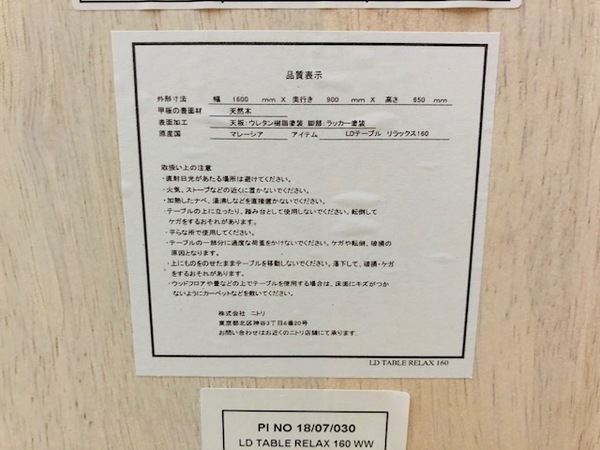 品質表示
外形寸法 幅 1600 mm X 奥行き 900 mm X 高さ 650 mm
甲板の表面材 天然木
表面加工 天板:ウレタン樹脂塗装 脚部:ラッカー塗装
原産国 マレーシア アイテム LDテーブル リラックス160
取扱い上の注意
・直射日光があたる場所は避けてください。
・火気、ストーブなどの近くに置かないでください。
・加熱したナベ、湯沸しなどを直接置かないでください。
・テーブルの上に立ったり、踏み台として使用しないでください。転倒して
ケガをするおそれがあります。
・平らな所で使用してください。
・テーブルの一部分に過度な荷重をかけないでください。ケガや転倒、破損の
原因となります。
・上にものをのせたままテーブルを移動しないでください。落下して、破損・ケガ
をするおそれがあります。
・ウッドフロアや畳などの上でテーブルを使用する場合は、床面にキズがつか
ないようにカーペットなどを敷いてください。
株式会社 ニトリ
東京都北区神谷3丁目6番20号
お問い合わせはお近くのニトリ店舗にて承ります.
LD TABLE RELAX 160
PI NO 18/07/030
LD TABLE RELAX 160 WW